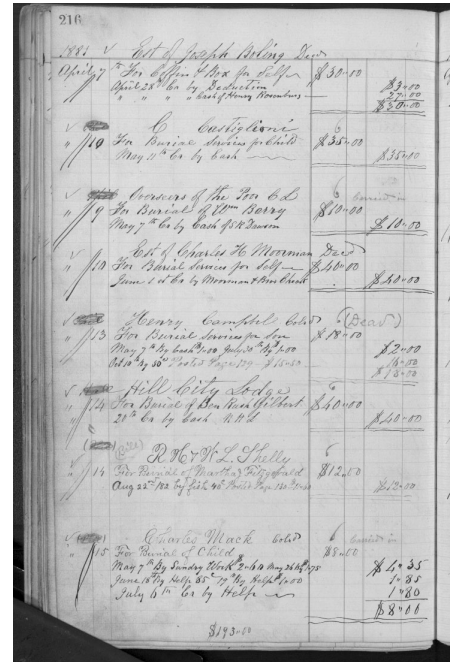 216
1881 Est of Joseph Boling Decd
April 7 For Coffin & Box for Self $30.00
April 28th Cr by Deduction $3.00
" " " " Cash of Henry 27.00
$30.00
C Castiglioni
" 10 For Burial Services for Child $35.00
May 11th Cr by Cash $35.00
Overseers of the Poor C L
" 9 For Burial of Wm Berry $10.00
May 7th Cr by Cash of S H Dawson $10.00
Est of Charles H Moorman Decd
" 10 For Burial Services for Self $40.00
June 1st Cr by Moorman & $40.00
Henry Campbell Cold (Dead)
" 13 For Burial Services for Son $18.00
May 7th By Cash 1.00 July 30th By 1.00 $2.00
Oct 10th by Posted Page 16.00
$18.00
Hill City Lodge
" 14 For Burial of Ben Gilbert $40.00
28th Cr by Cash $40.00
R H & W L Shelly
" 14 For Burial of Martha Fitzgerald $12.00
Aug 22nd /82 by fish Posted Page $12.00
Charles Mack Cold
" 15 For Burial of Child $8.00
May 7th By Sunday Work May 26 $4.35
June 18 By Help 85c 19 By Help 1.00 1.85
July 6th Cr by Help 1.80
$8.00
$193.00